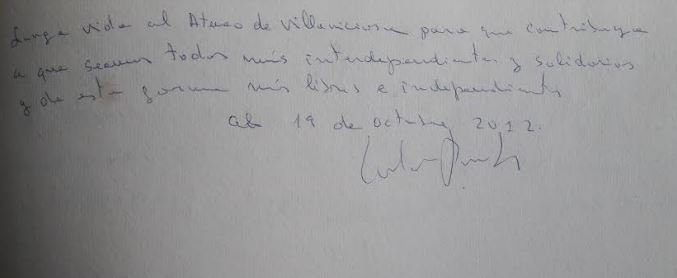 Larga vida al Ateneo de Villaviciosa para que contribuya
a que seamos todos más interdependientes y solidarios
y de esta forma más libres e independientes
a 19 de octubre 2012.